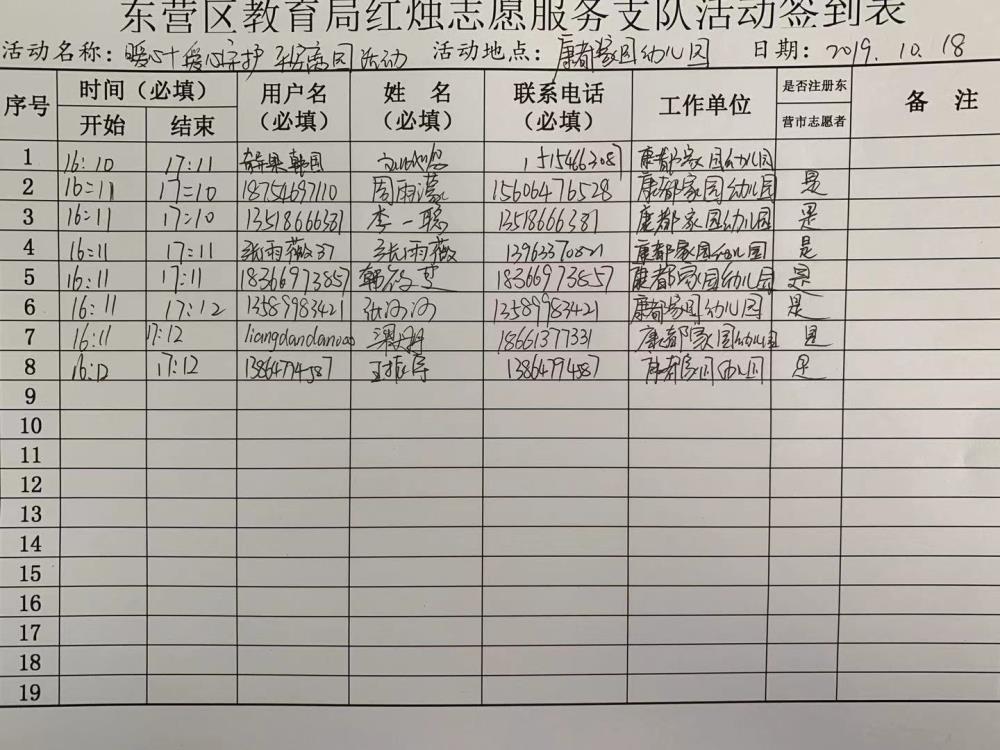 东营区教育局红烛志愿服务支队活动签到表
活动名称：暖心十缓心守护 平安离园活动 活动地点：康都家园幼儿园 日期：2019.10.18
序号 时间（必填） 开始 结束 用户名（必填） 姓名（必填） 联系电话（必填） 工作单位 是否注册东营市志愿者 备注
1 16:10 17:11 康都家园幼儿园
2 16:11 17:10 18754697110 周雨濛 15606476528 康都家园幼儿园 是
3 16:11 17:10 13518666381 李一聪 13518666381 康都家园幼儿园 是
4 16:11 17:11 张雨薇237 张雨薇 康都家园幼儿园 是
5 16:11 17:11 18366973857 18366973857 康都家园幼儿园 是
6 16:11 17:12 13589983421 张河河 13589983421 康都家园幼儿园 是
7 16:11 17:12 梁丹丹 18661377331 康都家园幼儿园 是
8 16:12 17:12 13864794587 13864794587 康都家园幼儿园 是
9
10
11
12
13
14
15
16
17
18
19